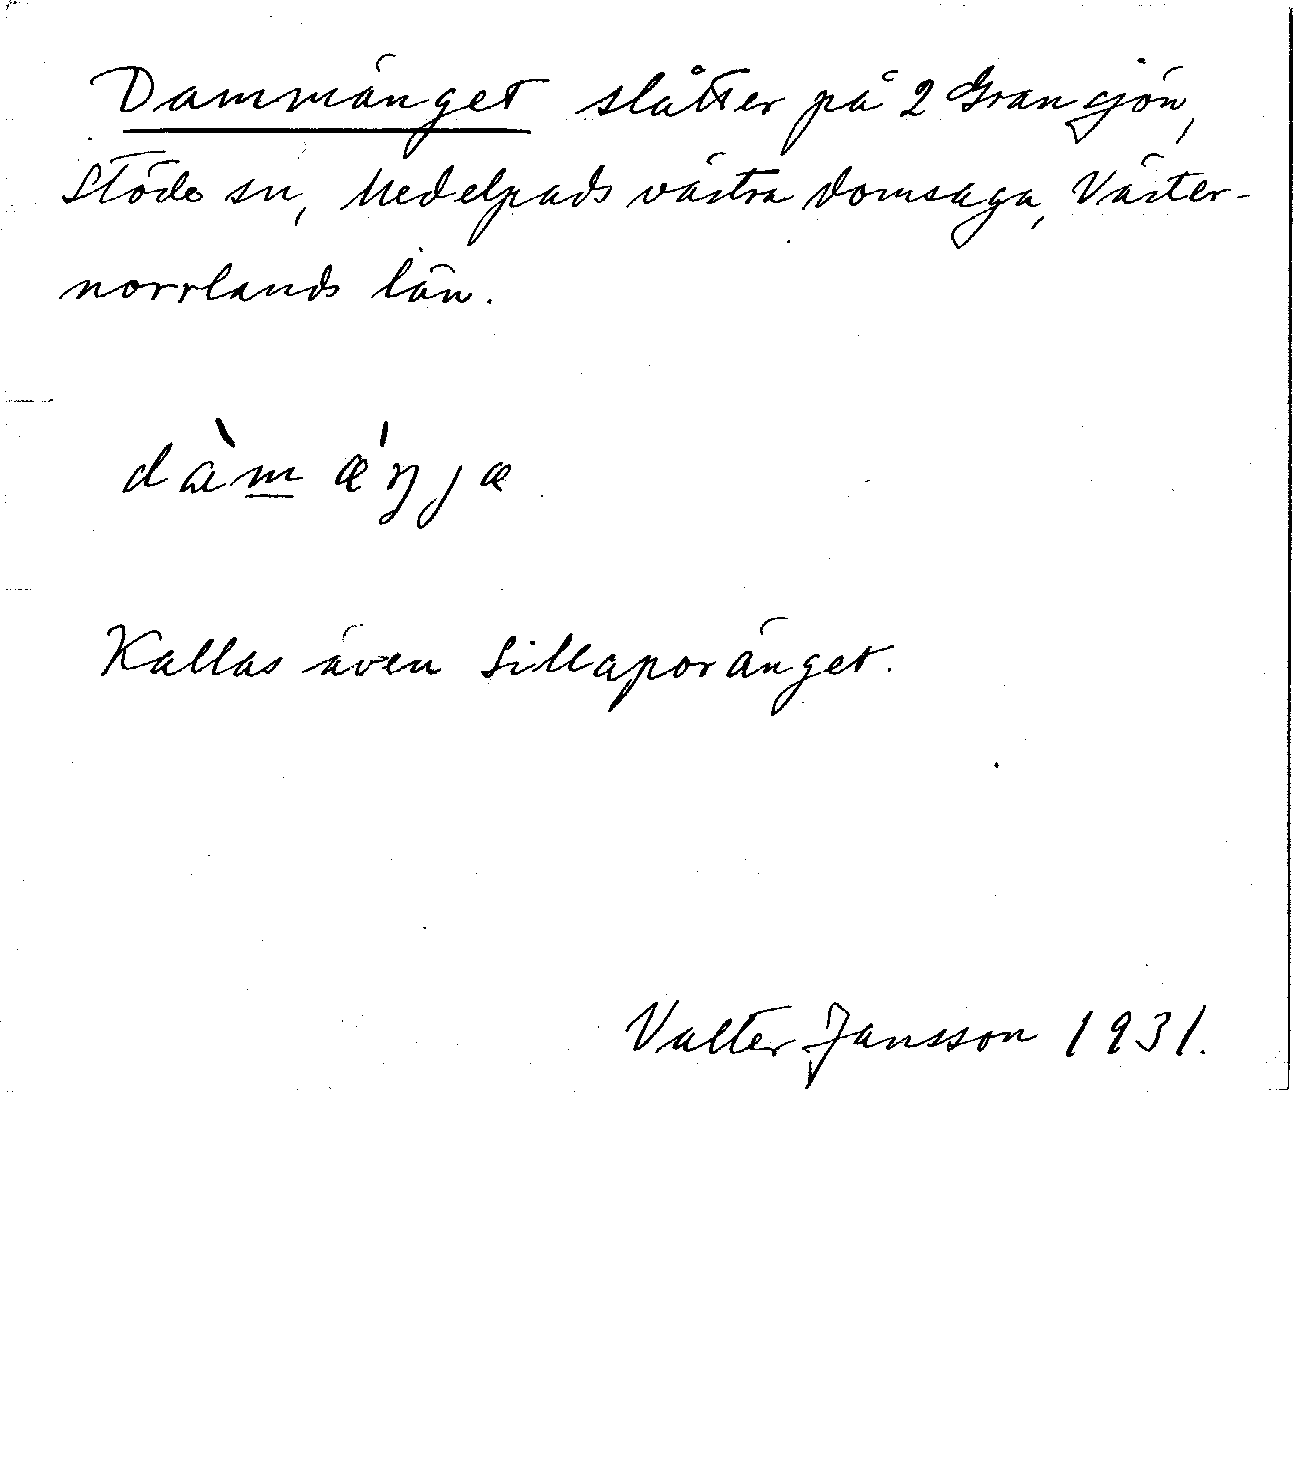 Dammänget slåtter på 2 Gransjön,
Stöde sn, Medelpads västra domsaga, Väster-
norrlands län.
dàm æ̀ŋjæ
Kallas även Sillaporänget.
Valter Jansson 1931.